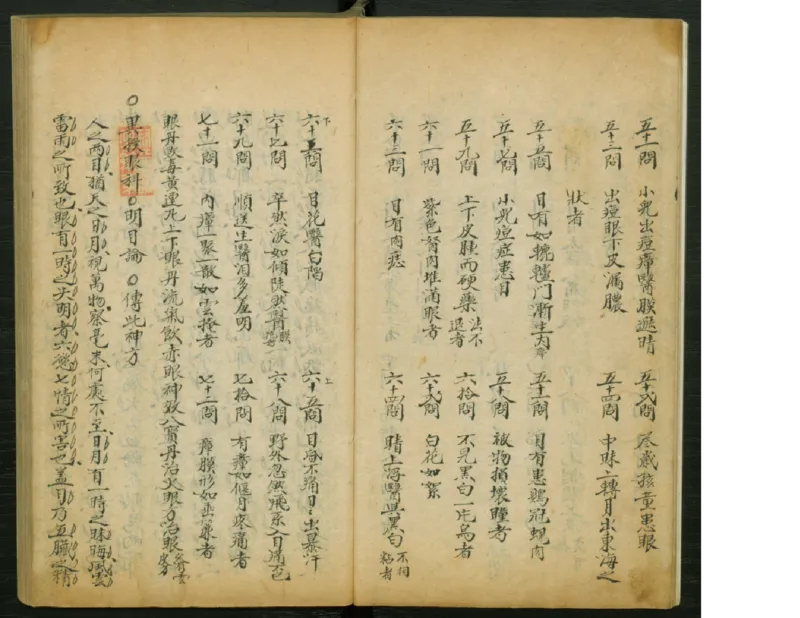 五十一問 小兒出痘瘴醫膜遮睛 五十弍問 孩童患眼
五十三問 出痘眼下皮漏膿 五十四問 中昧二轉月出東海之
狀者
五十五問 目有如轆轤門漸生肉 五十六問 目有患鷄冠蜆肉
五十七問 小兒痘症患目 五十八問 被物損壞瞳者
五十九問 上下皮胞而硬藥法不退者 六十問 不見黑白一片烏者
六十一問 紫色胬肉堆滿眼者 六十弍問 白花如絮
六十三問 目有肉痣 六十四問 睛上浮醫與黑白不相粘者
下 六十六問 目花醫白陷 上 六十五問 目昏不痛日出暴汗
六十七問 卒然淚如傾陡然醫膜 六十八問 野外忽然飛絲入目痛不已
六十九問 順送生醫淚多羞明 七拾問 有瘴如偃月疼痛者
七十一問 內瘴一聚一散如雲掩者 七十二問 瘴膜形如垂簾者
眼丹敗毒黃連瓦上下眼丹流氣飲赤眼神效八寶丹治火眼方
○異授眼科○明目論○傳此神方
人之兩目猶天之日月視萬物察毫末何處不至日月有一時之昧晦風雲
雷雨之所致也眼有一時之失明者六慾七情之所害也盖目乃五臟之精